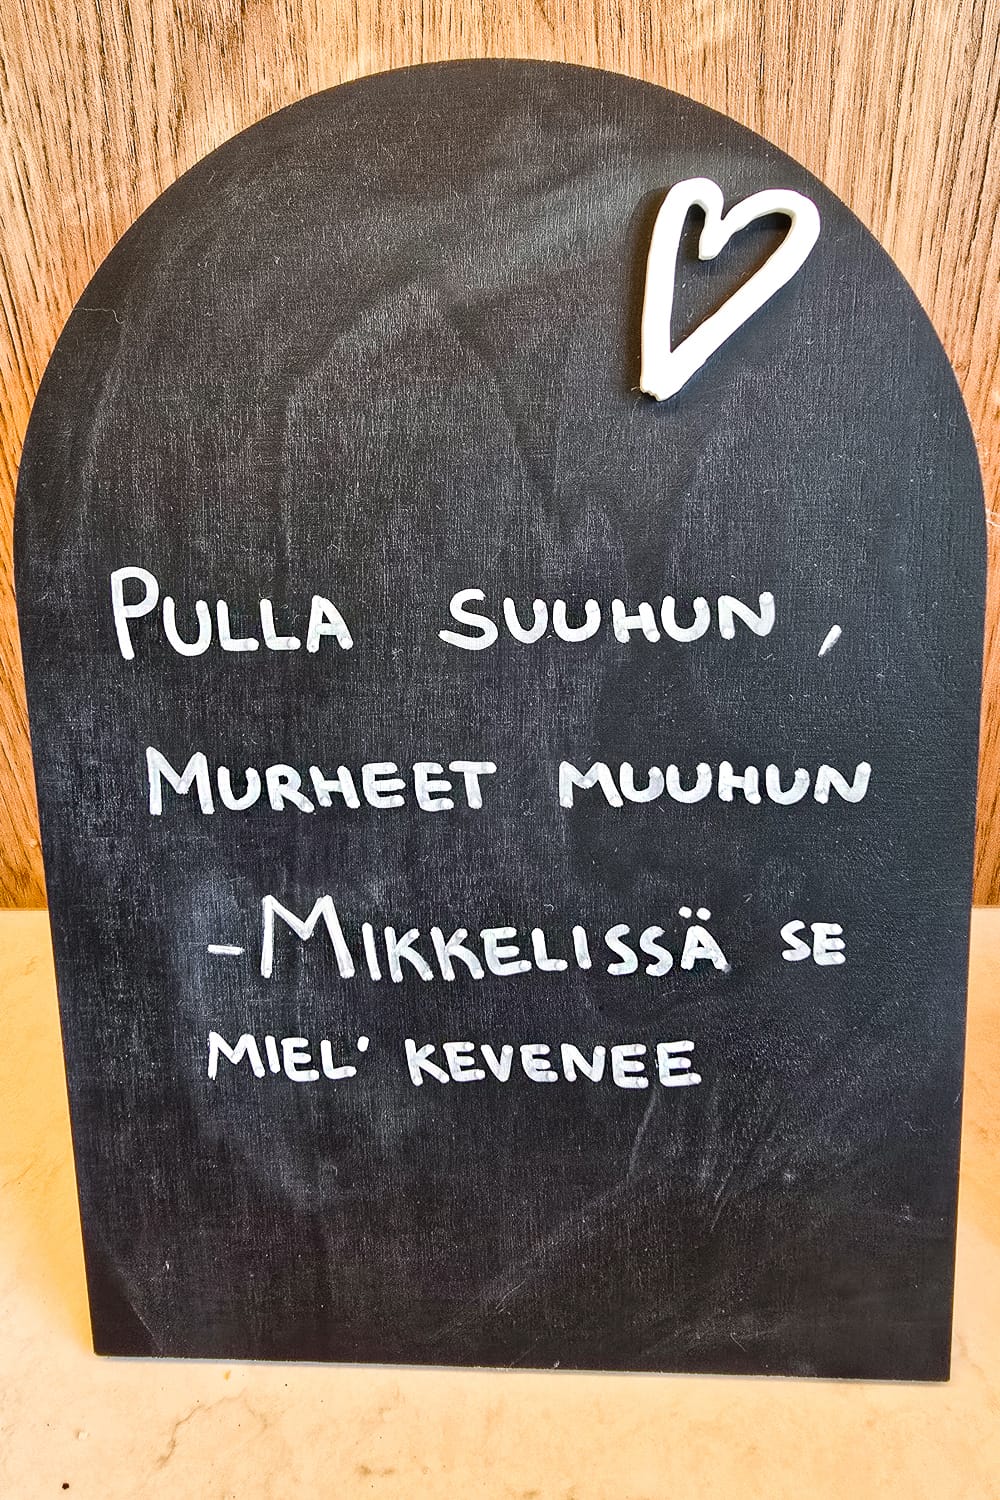 PULLA SUUHUN,
MURHEET MUUHUN
-MIKKELISSÄ SE
MIEL' KEVENEE